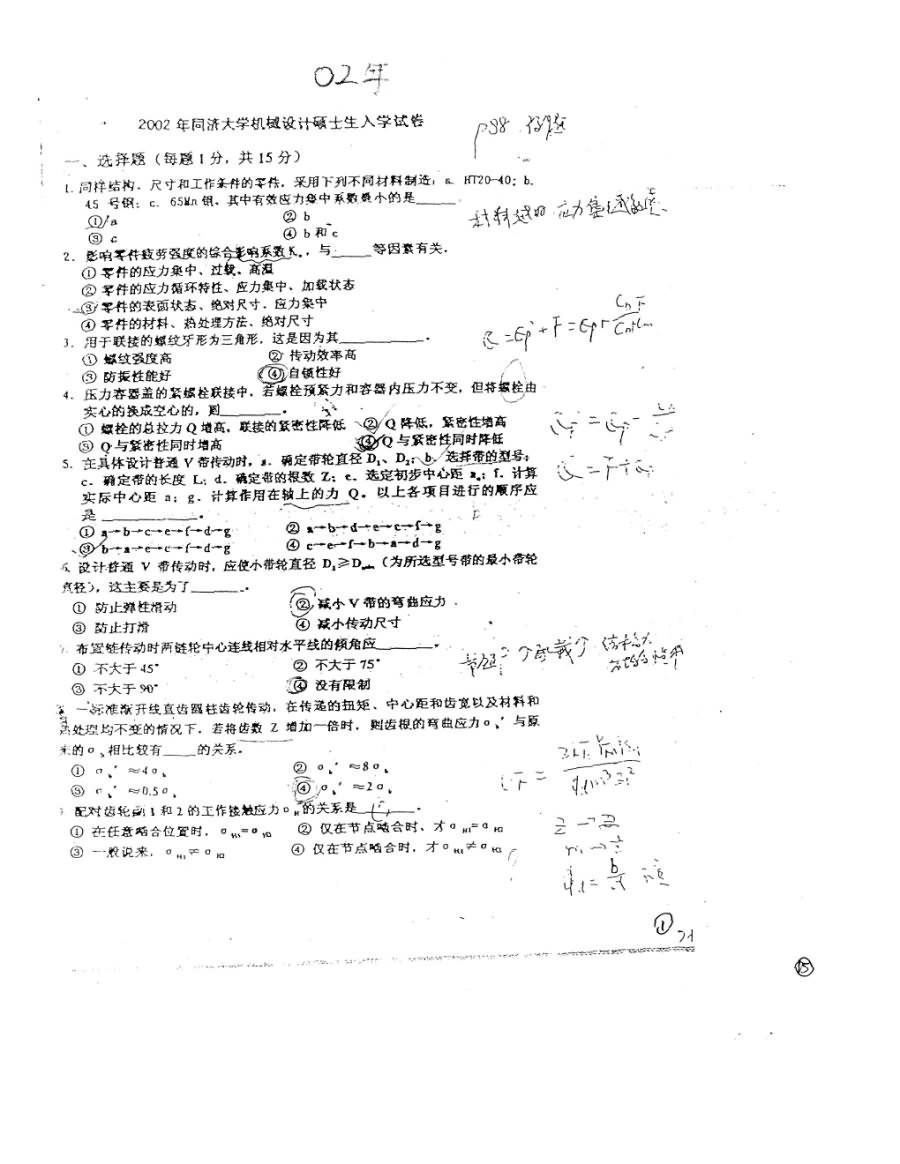 02年
2002 年同济大学机械设计硕士生入学试卷
p98 例题
一、选择题（每题 1 分，共 15 分）
1. 同样结构、尺寸和工作条件的零件，采用下列不同材料制造：a. HT20-40；b.
45 号钢；c. 65Mn 钢，其中有效应力集中系数最小的是____
① a ② b
③ c ④ b 和 c
2. 影响零件疲劳强度的综合影响系数 K，与____等因素有关．
① 零件的应力集中、过载、高温
② 零件的应力循环特性、应力集中、加载状态
③ 零件的表面状态、绝对尺寸、应力集中
④ 零件的材料、热处理方法、绝对尺寸
3. 用于联接的螺纹牙形为三角形，这是因为其________．
① 螺纹强度高 ② 传动效率高
③ 防振性能好 ④ 自锁性好
4. 压力容器盖的紧螺栓联接中，若螺栓预紧力和容器内压力不变，但将螺栓由
实心的换成空心的，则______．
① 螺栓的总拉力 Q 增高，联接的紧密性降低 ② Q 降低，紧密性增高
③ Q 与紧密性同时增高 ④ Q 与紧密性同时降低
5. 在具体设计普通 V 带传动时，a．确定带轮直径 D₁、D₂；b．选择带的型号；
c．确定带的长度 L；d．确定带的根数 Z；e．选定初步中心距 a₀；f．计算
实际中心距 a；g．计算作用在轴上的力 Q．以上各项目进行的顺序应
是________．
① a→b→c→e→f→d→g ② a→b→d→e→c→f→g
③ b→a→e→c→f→d→g ④ c→e→f→b→a→d→g
6. 设计普通 V 带传动时，应使小带轮直径 D₁≥Dmin（为所选型号带的最小带轮
直径），这主要是为了______．
① 防止弹性滑动 ② 减小 V 带的弯曲应力．
③ 防止打滑 ④ 减小传动尺寸
7. 布置链传动时两链轮中心连线相对水平线的倾角应______．
① 不大于 45° ② 不大于 75°
③ 不大于 90° ④ 没有限制
一标准渐开线直齿圆柱齿轮传动，在传递的扭矩、中心距和齿宽以及材料和
热处理均不变的情况下，若将齿数 Z 增加一倍时，则齿根的弯曲应力σb′与原
来的σb相比较有____的关系．
① σb′≈4σb ② σb′≈8σb
③ σb′≈0.5σb ④ σb′≈2σb
配对齿轮副 1 和 2 的工作接触应力σH的关系是______．
① 在任意啮合位置时，σH1=σH2 ② 仅在节点啮合时、才σH1=σH2
③ 一般说来，σH1≠σH2 ④ 仅在节点啮合时，才σH1≠σH2
①
⑮